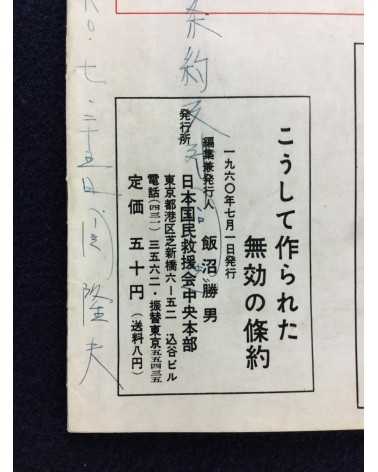 こうして作られた
無効の條約
一九六〇年七月一日発行
編集兼発行人 飯沼勝男
発行所 日本国民救援会中央本部
東京都港区芝新橋六ー五二 込谷ビル
電話(四三一)三五六二・振替東京五五四三五
定価 五十円(送料八円)
条約反
六〇・七・二十五日 関隆夫